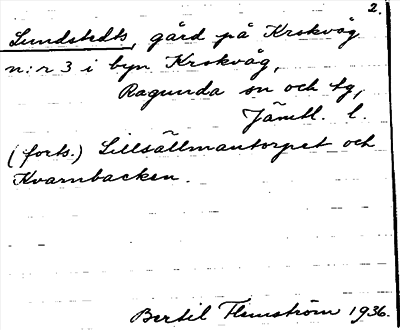 2.
Lundstedts, gård på Krokvåg
n:r 3 i byn Krokvåg,
Ragunda sn och tg,
Jämtl. l.
(forts.) Lillsällmantorpet och
Kvarnbacken.
Bertil Flemström 1936.